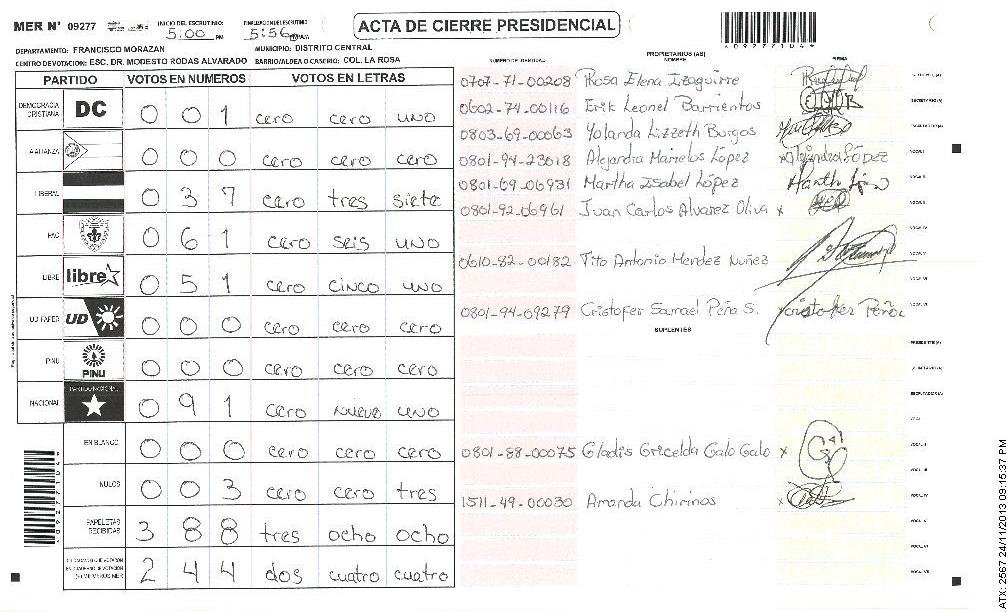 MER N° 09277 INICIO DEL ESCRUTINIO: 5:00 PM FINALIZACION DEL ESCRUTINIO: 5:56 PM ACTA DE CIERRE PRESIDENCIAL
DEPARTAMENTO: FRANCISCO MORAZAN MUNICIPIO: DISTRITO CENTRAL
CENTRO DE VOTACION: ESC. DR. MODESTO RODAS ALVARADO BARRIO/ALDEA O CASERIO: COL. LA ROSA
PARTIDO VOTOS EN NUMEROS VOTOS EN LETRAS
DEMOCRACIA CRISTIANA DC 0 0 1 cero cero uno
LA ALIANZA 0 0 0 cero cero cero
LIBERAL 0 3 7 cero tres siete
PAC 0 6 1 cero seis uno
LIBRE libre 0 5 1 cero cinco uno
UD FAPER UD 0 0 0 cero cero cero
PINU PINU 0 0 0 cero cero cero
NACIONAL PARTIDO NACIONAL 0 9 1 cero nueve uno
EN BLANCO 0 0 0 cero cero cero
NULOS 0 0 3 cero cero tres
PAPELETAS RECIBIDAS 3 8 8 tres ocho ocho
2 4 4 dos cuatro cuatro
PROPIETARIOS (AS)
NUMERO DE IDENTIDAD NOMBRE FIRMA
0707-71-00208 Rosa Elena Izaguirre
0602-74-00116 Erik Leonel Barrientos
0803-69-00063 Yolanda Lizzeth Burgos
0801-94-23018 Alejandra Mairelos López
0801-69-06931 Martha Isabel López
0801-92-06961 Juan Carlos Alvarez Oliva x
0610-82-00182 Tito Antonio Mendez Nuñez
0801-94-09279 Cristofer Samael Peña S.
SUPLENTES
0801-88-00075 Gladis Gricelda Galo Galo x
1511-49-00030 Amanda Chirinos x
ATX: 2567 24/11/2013 09:15:37 PM